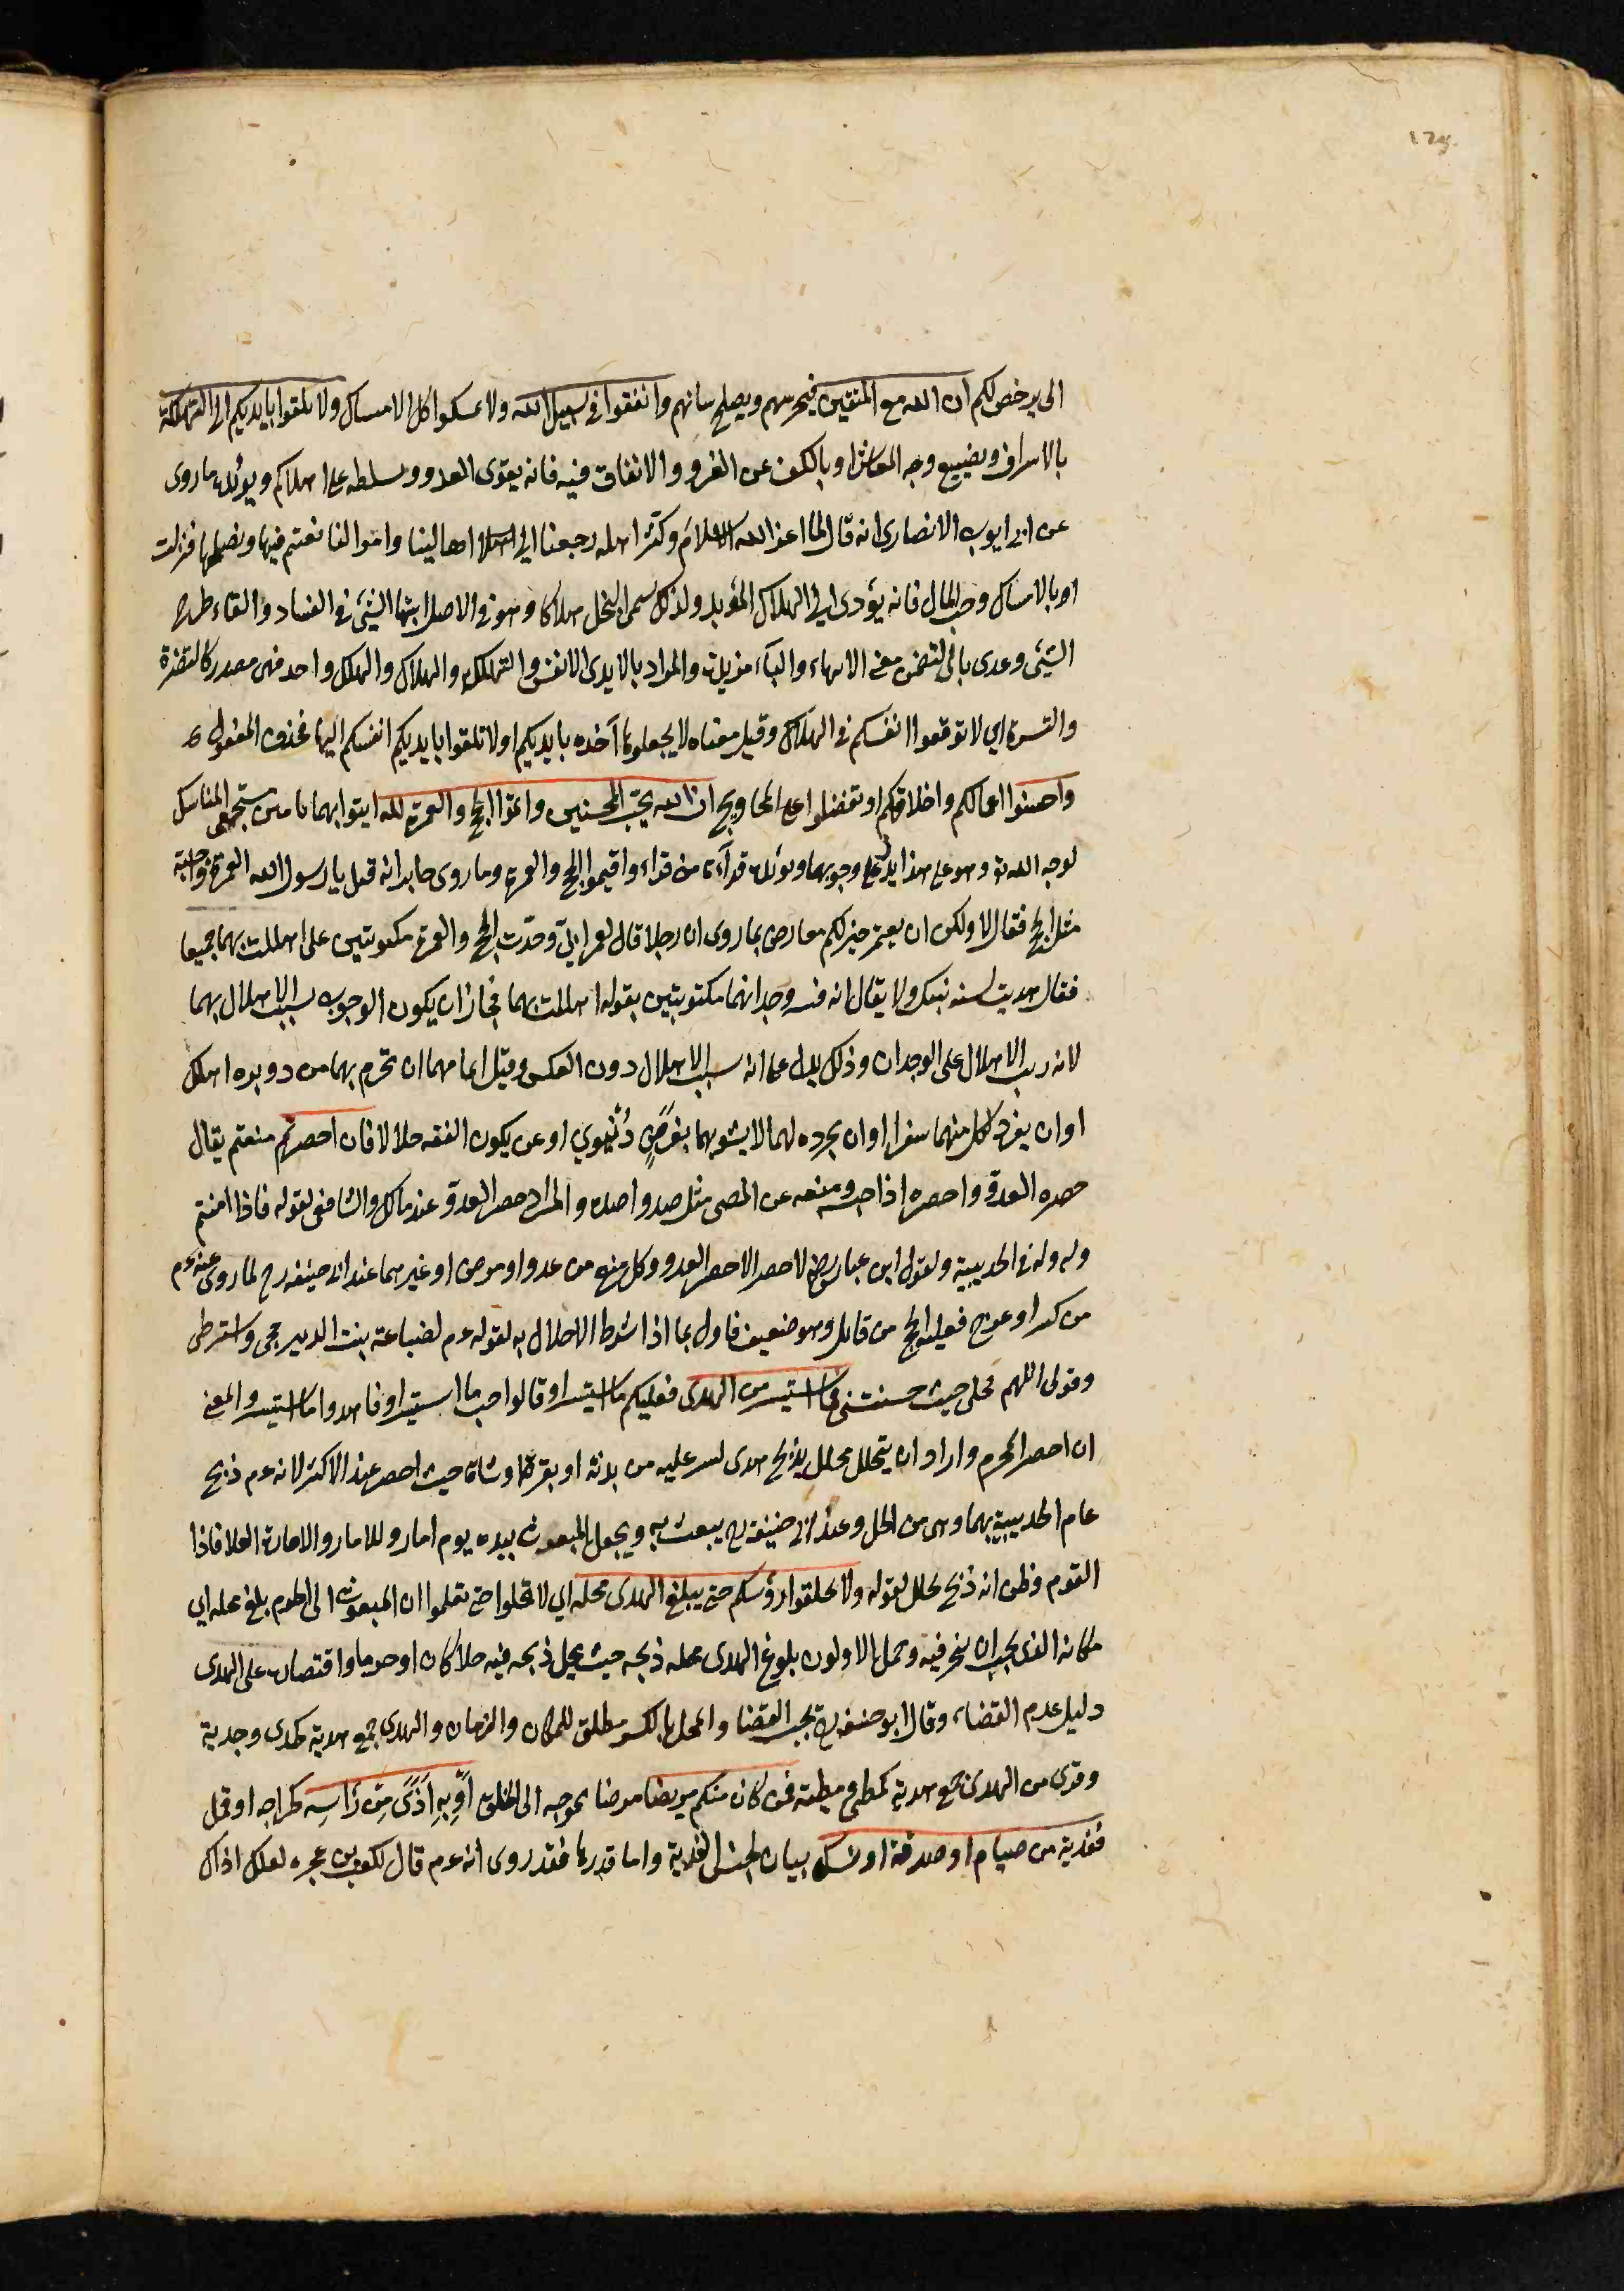 125
الى يرخص لكم ان الله مع المتقين فيحرسهم ويصلح شانهم وانفقوا في سبيل الله ولا تمسكوا كل الامساك ولا تلقوا بايديكم الى التهلكة
بالاسراف وتضييع وجه المعاش او بالكف عن الغزو والانفاق فيه فانه يقوى العدو ويسلطه على اهلاككم ويؤيده ما روى
عن ابى ايوب الانصارى انه قال لما اعز الله الاسلام وكثر اهله رجعنا الى اهالينا واموالنا نقيم فيها ونصلحها فنزلت
او بالامساك وحب المال فانه يؤدى الى الهلاك المؤبد ولذلك سمى البخل هلاكا وهو في الاصل انتهاء الشئ في الفساد والقاء طرح
الشئ وعدى بالى لتضمن معنى الانهاء والباء مزيدة والمراد بالايدى الانفس والتهلكة والهلاك والهلك واحد فهى مصدر كالتضرة
والتسرة اي لا توقعوا انفسكم في الهلاك وقيل معناه لا تجعلوها آخذه بايديكم او لا تلقوا بايديكم انفسكم اليها فحذف المفعول
واحسنوا اعمالكم واخلاقكم او تفضلوا على المحاويج ان الله يحب المحسنين واتموا الحج والعمرة لله ايتوا بهما تامين مستجمعى المناسك
لوجه الله تع وهو على هذا يدل على وجوبهما ويؤيده قرآءة من قراء واقيموا الحج والعمرة وما روى جابر انه قيل يا رسول الله العمرة واجبة
مثل الحج فقال لا ولكن ان يعتمر خير لكم معارض بما روى ان رجلا قال لعمر اني وجدت الحج والعمرة مكتوبتين على اهللت بهما جميعا
فقال هديت لسنة نبيك ولا يقال انه فسر وجدانهما مكتوبتين بقوله اهللت بهما فجاز ان يكون الوجوب بسبب الاهلال بهما
لانه رتب الاهلال على الوجدان وذلك يدل على انه سبب الاهلال دون العكس وقيل اتمامهما ان تحرم بهما من دويرة اهلك
او ان يفرد لكل منهما سفرا او ان يجرده لهما لا يشوبهما بغرض دنيوي او عن يكون النفقه حلالا فان احصرتم منعتم يقال
حصره العدو واحصره اذا حبسه ومنعه عن المضى مثل صد واصده والمراد حصر العدو عند مالك والشافعى لقوله فاذا امنتم
ولنزوله في الحديبية ولقول ابن عباس رضع لا حصر الا حصر العدو وكل منع من عدو او مرض او غيرهما عند ابى حنيفه رح لما روى عنه عم
من كسر او عرج فعليه الحج من قابل وهو ضعيف فاول بما اذا شرط الاحلال به لقوله عم لضباعة بنت الزبير حجى واشترطى
وقولى اللهم محلى حيث حبستنى فما استيسر من الهدى فعليكم ما استيسر او قالواجب ما استيسر او فاهدوا ما استيسر والمعنى
ان احصر المحرم واراد ان يتحلل تحلل بذبح هدى يسر عليه من بدنة او بقرة او شاة حيث احصر عند الاكثر لانه عم ذبح
عام الحديبية بها وهى من الحل وعند ابى حنيفه رح يبعث به ويجعل المبعوث بيده يوم امار
القوم وظن انه ذبح تحلل لقوله ولا تحلقوا رؤسكم حتى يبلغ الهدى محله اي لا تحلوا حتى تعلموا ان المبعوث الى الحرم بلغ محله اي
مكانه الذى يجب ان ينحر فيه وحمل الاولون بلوغ الهدى محله ذبحه حيث يحل ذبحه فيه حلا كان او حرما واقتصاره على الهدى
دليل عدم القضاء وقال ابو حنيفه رح يجب القضا والمحل بالكسر مطلق للمكان والزمان والهدى جمع هدية كجدى وجدية
وقرى من الهدى جمع هدية كمطى ومطية فمن كان منكم مريضا مرضا يحوجه الى الحلق أَوْ بِهِ أَذًى مِّن رَأسِهِ كجراحه او قمل
ففدية من صيام او صدقة او نسك بيان لجنس الفدية واما قدرها فقد روى انه عم قال لكعب بن عجره لعلك اذاك